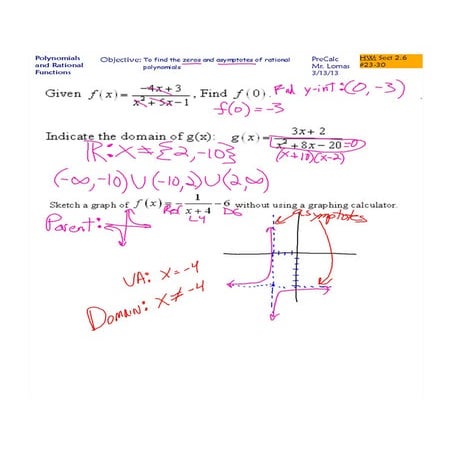 Polynomials and Rational Functions
Objective: To find the zeros and asymptotes of rational polynomials
PreCalc
Mr. Lomas
3/13/13
HW: Sect 2.6
#23-30
Given f(x) = (-4x + 3)/(x² + 5x - 1), Find f(0). Find y-int: (0, -3)
f(0) = -3
Indicate the domain of g(x): g(x) = (3x + 2)/(x² + 8x - 20) = 0
(x+10)(x-2)
ℝ: x ≠ {2, -10}
(-∞, -10) ∪ (-10, 2) ∪ (2, ∞)
Sketch a graph of f(x) = -1/(x + 4) - 6 without using a graphing calculator.
Ref L4 D6
asymptotes
Parent:
VA: x = -4
Domain: x ≠ -4